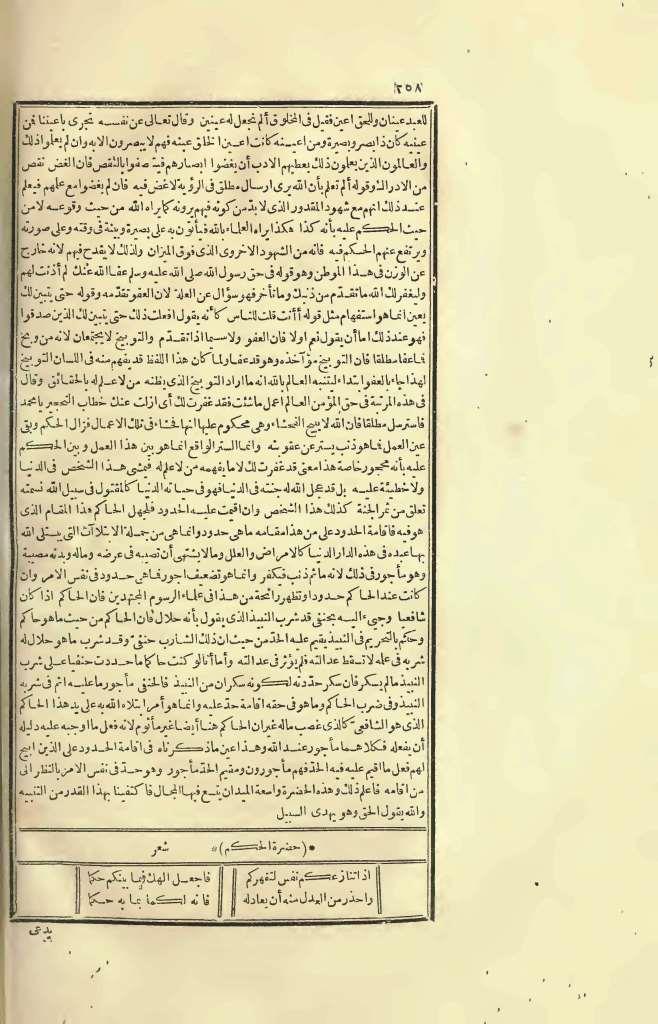 ٢٥٨
للعبد عينان وللحق أعين فقيل فى المخلوق ألم نجعل له عينين وقال تعالى عن نفسه تجرى بأعيننا فمن
عينيه كان ذا بصر وبصيرة ومن أعينه كانت أعين الخلق عينه فهم لا يبصرون الا به وان لم يعلموا ذلك
والعالمون الذين يعلمون ذلك يعطيهم الادب أن يغضوا أبصارهم فيتصفوا بالنقص فان الغض نقص
من الادراك وقوله ألم تعلم بأن الله يرى ارسال مطلق فى الرؤية لا غض فيه فان لم يغضوا مع علمهم فيعلم
عند ذلك انهم مع شهود المقدور الذى لا بد من كونه فهم يرونه كما يراه الله من حيث وقوعه لا من
حيث الحكم عليه بأنه كذا هكذا يراه العلماء بالله فيأتون به على بصيرة وبينة فى وقته وعلى صورته
ويرتفع عنهم الحكم فيه فانه من الشهود الاخروى الذى فوق الميزان ولذلك لا يقدح فيهم لانه خارج
عن الوزن فى هذا الموطن وهو قوله فى حق رسول الله صلى الله عليه وسلم عفا الله عنك لم أذنت لهم
وليغفر لك الله ما تقدم من ذنبك وما تأخر فهو سؤال عن العلة لان العفو تقدمه وقوله حتى يتبين لك
يعين انما هو استفهام مثل قوله أأنت قلت للناس كأنه يقول أفعلت ذلك حتى يتبين لك الذين صدقوا
فهو عند ذلك اما أن يقول نعم أو لا فان العفو ولا سيما اذا تقدم والتوبيخ لا يجتمعان لانه من وبخ
فما عفا مطلقا فان التوبيخ مؤاخذة وهو قد عفا ولما كان هذا اللفظ قد يفهم منه فى اللسان التوبيخ
لهذا جاء بالعفو ابتداء ليتنبه العالم بالله انه ما أراد التوبيخ الذى يظنه من لا علم له بالحقائق وقال
فى هذه المرتبة فى حق المؤمن العالم اعمل ما شئت فقد غفرت لك أى أزلت عنك خطاب التحجير يا محمد
فاسترسل مطلقا فان الله لا يبيح الفحشاء وهى محكوم عليها انها فحشاء فى تلك الاعمال فزال الحكم وبقى
عين العمل فما هو ذنب يستر عن عقوبته وانما الستر الواقع انما هو بين هذا العمل وبين الحكم
عليه بأنه محجور خاصة هذا معنى قد غفرت لك لا ما يفهمه من لا علم له فيمشى هذا الشخص فى الدنيا
ولا خطيئة عليه بل قد عجل الله له جنته فى الدنيا فهو فى حياته الدنيا كالمقتول فى سبيل الله نسمته
تعلق من ثمر الجنة كذلك هذا الشخص وان أقيمت عليه الحدود فلجهل الحاكم هذا المقام الذى
هو فيه فاقامة الحدود على من هذا مقامه ما هى حدود وانما هى من جملة الابتلاآت التى يبتلى الله
بها عبده فى هذه الدار الدنيا كالامراض والعلل وما لا يشتهى أن تصيبه فى عرضه وماله وبدنه مصيبة
وهو مأجور فى ذلك لانه ما ثم ذنب فيكفر وانما هو تضعيف أجور فما هى حدود فى نفس الامر وان
كانت عند الحاكم حدودا وتظهر رائحة من هذا فى علماء الرسوم المجتهدين فان الحاكم اذا كان
شافعيا وجىء اليه بحنفى قد شرب النبيذ الذى يقول بأنه حلال فان الحاكم من حيث ما هو حاكم
وحكم بالتحريم فى النبيذ يقيم عليه الحد ومن حيث ان ذلك الشارب حنفى وقد شرب ما هو حلال له
شربه فى علمه لا تسقط عدالته فلم يؤثر فى عدالته وأما أنا لو كنت حاكما ما حددت حنفيا على شرب
النبيذ ما لم يسكر فان سكر حددته لكونه سكران من النبيذ فالحنفى مأجور ما عليه اثم فى شربه
النبيذ وفى ضرب الحاكم وما هو فى حقه اقامة حد عليه وانما هو أمر ابتلاه الله به على يد هذا الحاكم
الذى هو الشافعى كالذى غصب ماله غير ان الحاكم هنا أيضا غير مأثوم لانه فعل ما أوجبه عليه دليله
أن يفعله فكلاهما مأجور عند الله وهذا عين ما ذكرناه فى اقامة الحدود على الذين أبيح
لهم فعل ما أقيم عليه فيه الحد فهم مأجورون ومقيم الحد مأجور وهو حد فى نفس الامر بالنظر الى
من أقامه فاعلم ذلك وهذه الحضرة واسعة الميدان يتسع فيها المجال فاكتفينا بهذا القدر من التنبيه
والله يقول الحق وهو يهدى السبيل
*(حضرة الحكم)* شعر
اذا تنازعكم نفس لتقهركم فاجعل الهك فيما بينكم حكما
واحذر من العدل منه أن يعادله فانه لكما بما به حكما
يدعى